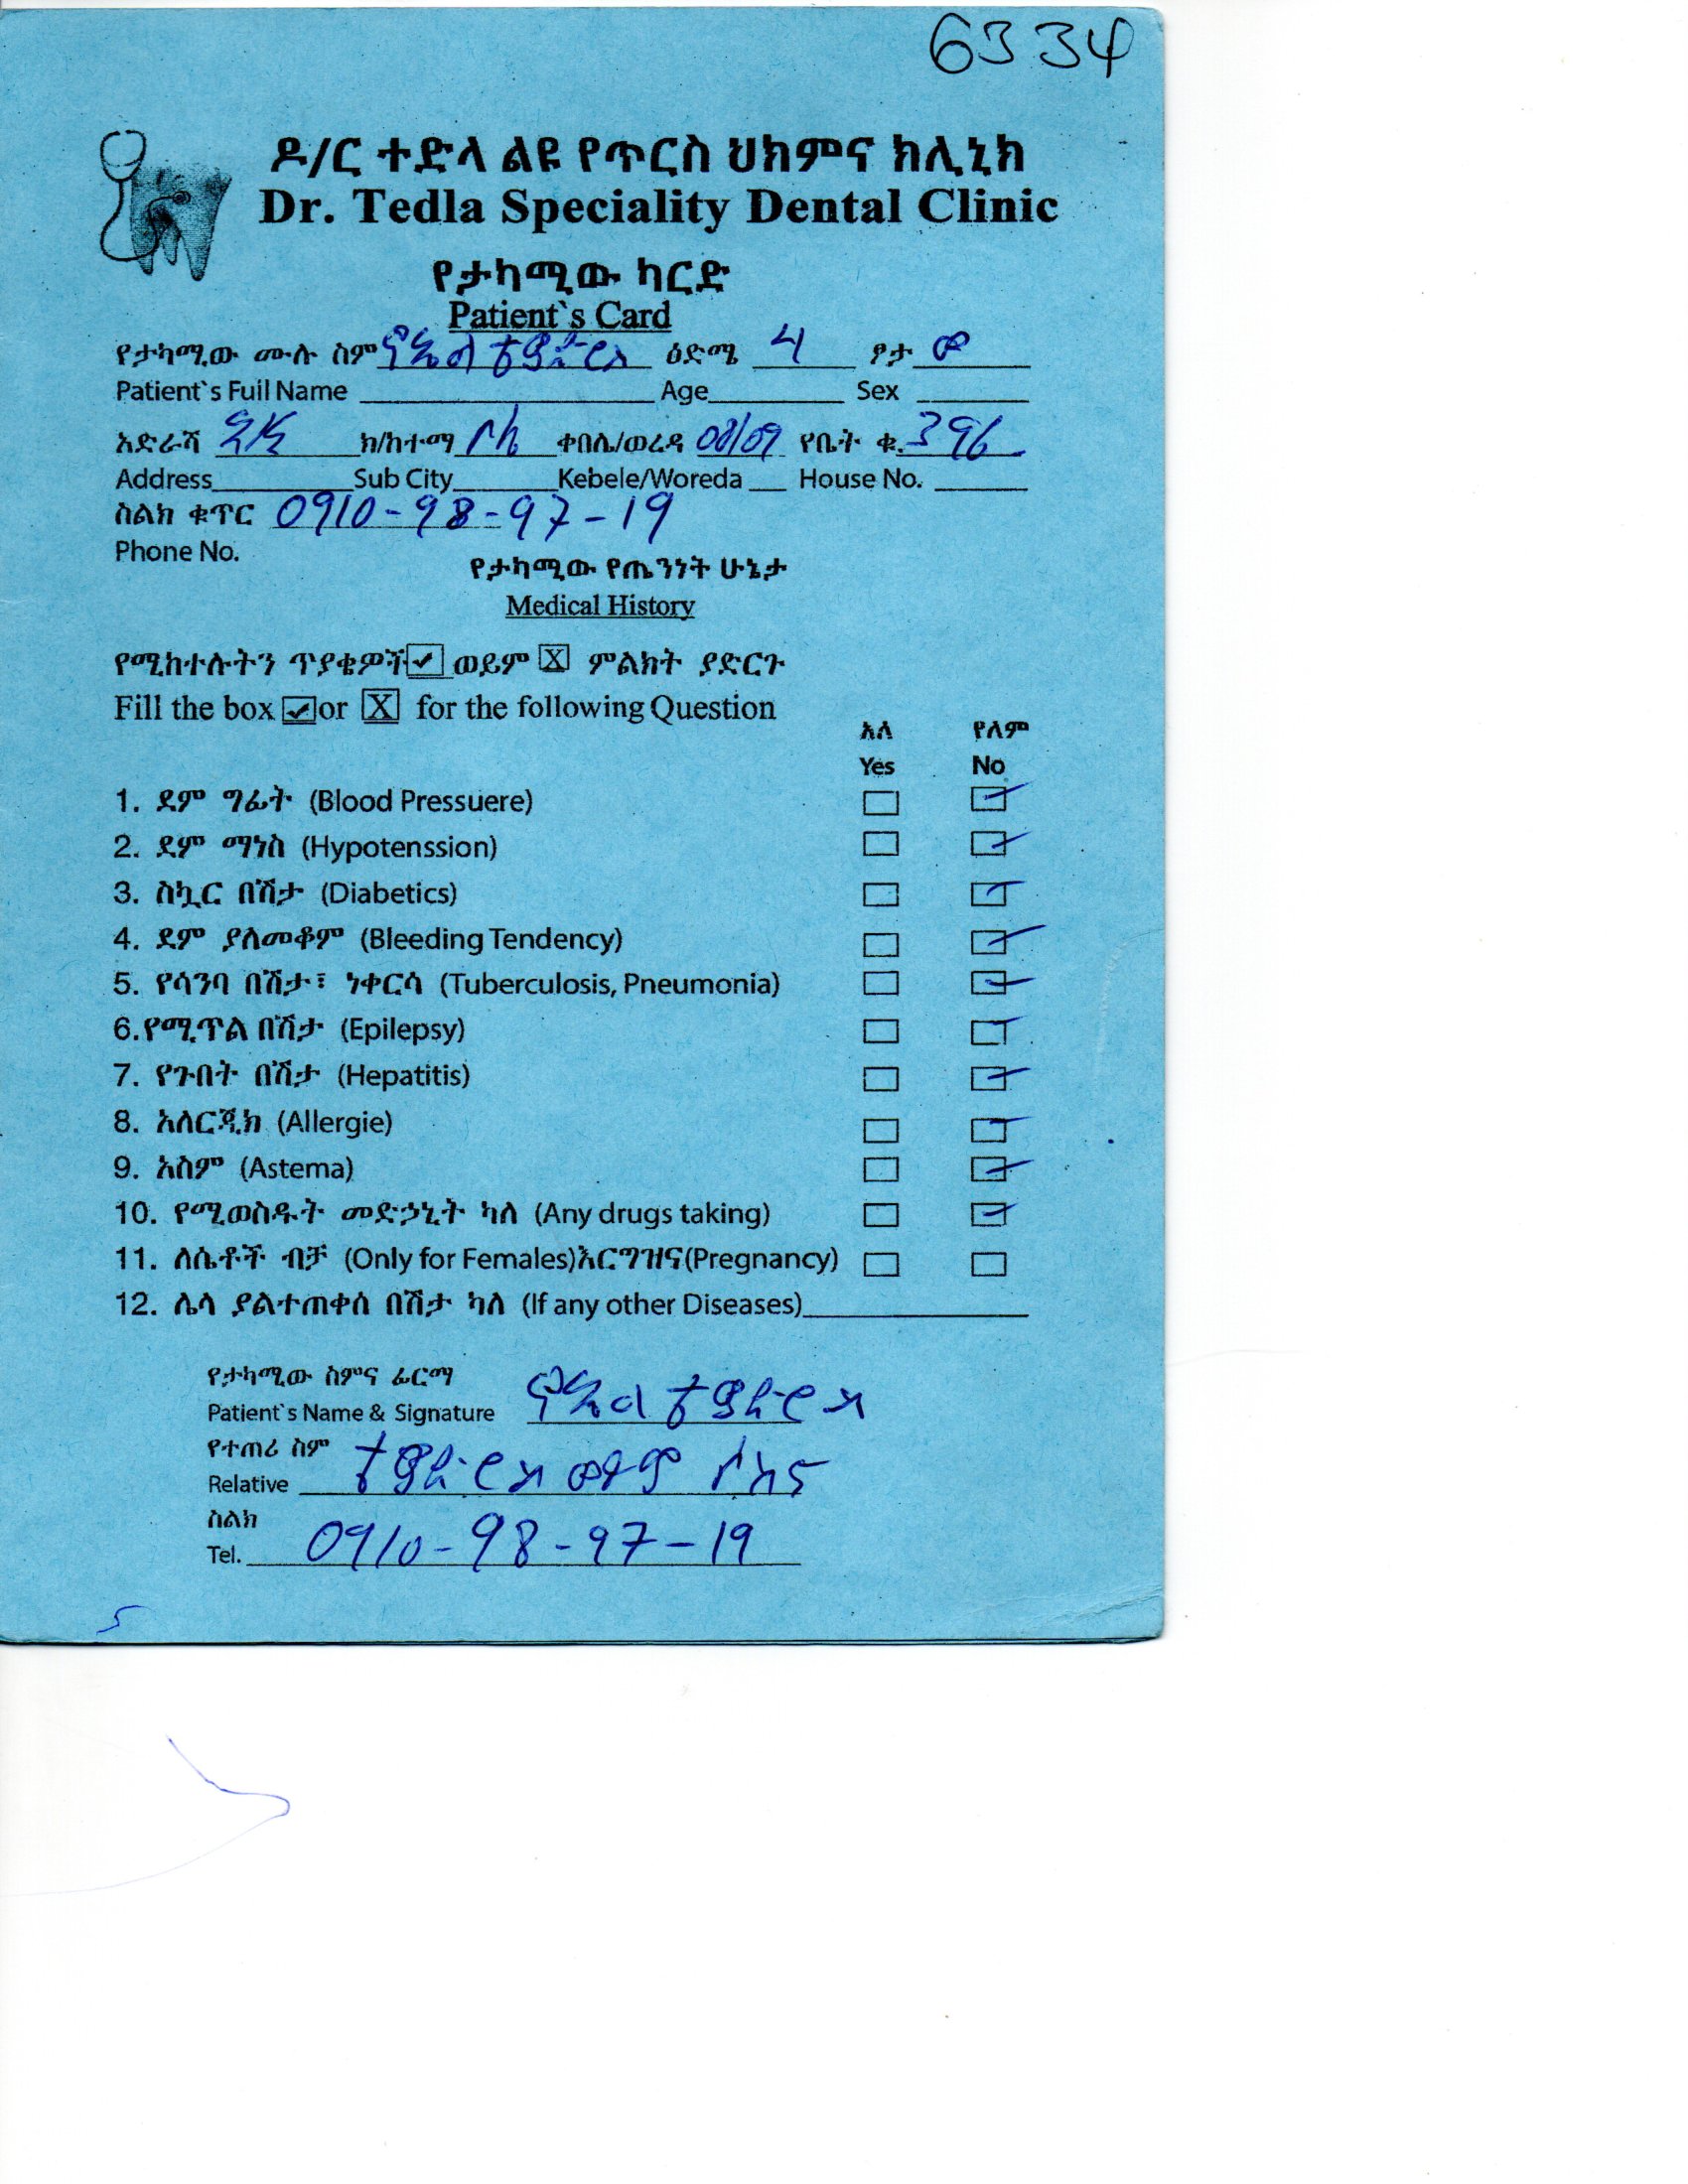 6334
ዶ/ር ተድላ ልዩ የጥርስ ህክምና ክሊኒክ
Dr. Tedla Speciality Dental Clinic
የታካሚው ካርድ
Patient`s Card
የታካሚው ሙሉ ስም ዕድሜ 4 ፆታ ወ
Patient`s Full Name Age Sex
አድራሻ ክ/ከተማ ቀበሌ/ወረዳ 08/09 የቤት ቁ. 396
Address Sub City Kebele/Woreda House No.
ስልክ ቁጥር 0910-98-97-19
Phone No.
የታካሚው የጤንነት ሁኔታ
Medical History
የሚከተሉትን ጥያቄዎች ✓ ወይም X ምልክት ያድርጉ
Fill the box ✓ or X for the following Question
አለ የለም
Yes No
1. ደም ግፊት (Blood Pressuere)
2. ደም ማነስ (Hypotenssion)
3. ስኳር በሽታ (Diabetics)
4. ደም ያለመቆም (Bleeding Tendency)
5. የሳንባ በሽታ፣ ነቀርሳ (Tuberculosis, Pneumonia)
6.የሚጥል በሽታ (Epilepsy)
7. የጉበት በሽታ (Hepatitis)
8. አለርጂክ (Allergie)
9. አስም (Astema)
10. የሚወስዱት መድኃኒት ካለ (Any drugs taking)
11. ለሴቶች ብቻ (Only for Females)እርግዝና(Pregnancy)
12. ሌላ ያልተጠቀሰ በሽታ ካለ (If any other Diseases)
የታካሚው ስምና ፊርማ
Patient`s Name & Signature
የተጠሪ ስም
Relative
ስልክ
Tel. 0910-98-97-19